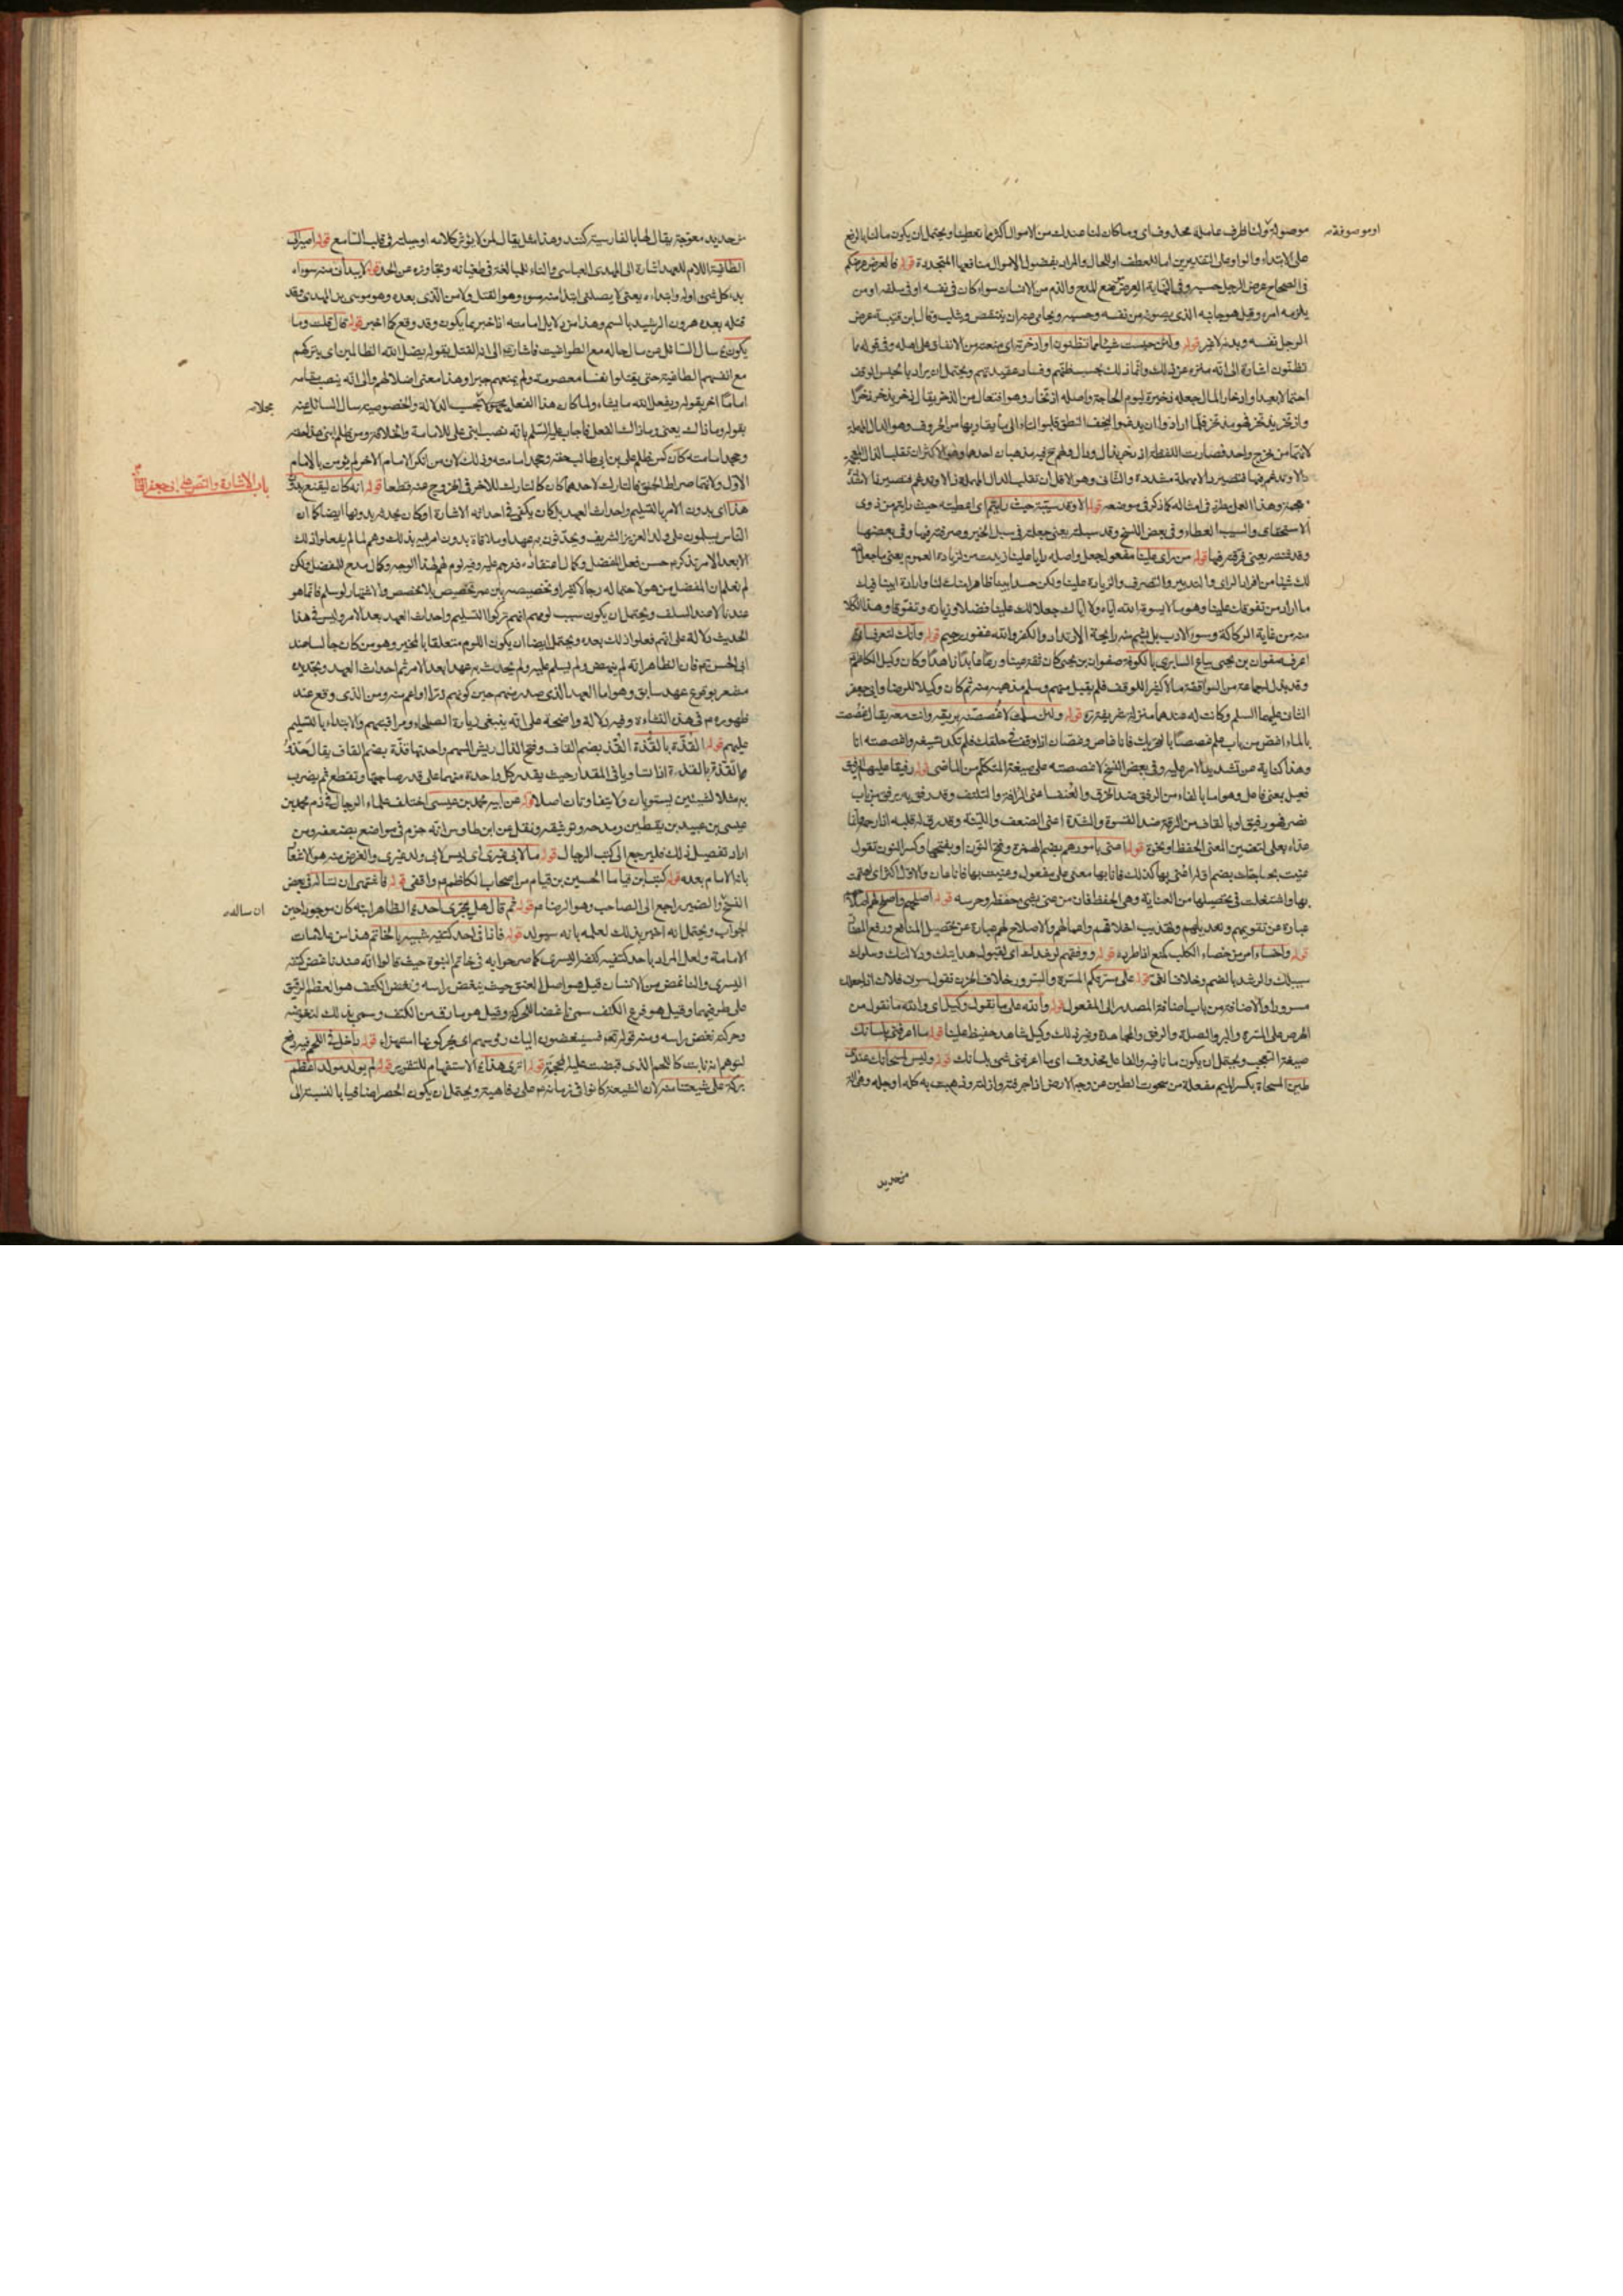 موصولة ولنا ظرف عامله محذوف اى وما كان لنا عندك من الاموال اكثر مما تعطينا ويحتمل ان يكون مالنا بالرفع
او موصوفة
على الابتداء والواو على التقديرين اما للعطف او للحال والمراد بفضول الاموال منافعها المتجددة قوله فالعرض عرضكم
فى الصحاح عرض الرجل حسبه وفى النهاية العرض موضع المدح والذم من الانسان سواء كان فى نفسه او فى سلفه او من
يلزمه امره وقيل هو جانبه الذى يصونه من نفسه وحسبه ويحامى عنه ان ينتقص ويثلب وقال ابن قتيبة عرض
الرجل نفسه وبدنه لا غير قوله ولئن حبست شيئا مما تظنون او ادخرته اى منعته من الانفاق على اهله وفى قوله مما
تظنون اشارة الى انه منزه عن ذلك وانما ذلك بحسب ظنهم وفساد عقيدتهم ويحتمل ان يراد بالحبس الوقف
احتمالا بعيدا وادخار المال جعله ذخيرة ليوم الحاجة واصله اذتخار وهو افتعال من الذخر يقال ذخر يذخر ذخرا
واذتخر يذتخر فهو مذتخر فلما ارادوا ان يدغموا ليخف النطق قلبوا التاء الى ما يقاربها من الحروف وهو الدال المهملة
لانهما من مخرج واحد فصارت اللفظة اذدخر بذال ودال ولهم ح فيه مذهبان احدهما وهو الاكثر ان تقلب الذال المعجمة
دالا وتدغم فيها فتصير دالا مهملة مشددة والثانى وهو الاقل ان تقلب الدال المهملة ذالا وتدغم فتصير ذالا مشددة
معجمة وهذا العمل مطرد فى امثاله كما ذكر فى موضعه قوله الا وقد سيبته حيث رايتم اى اعطيته حيث رايتم من ذوى
الاستحقاق والسيب العطاء وفى بعض النسخ وقد سبلته يعنى جعلته فى سبيل الخير وصرفته فيها وفى بعضها
وقد شتته يعنى فرقته فيها قوله من راى علينا مفعول لجعل واصله رايا علينا زيدت من لزيادة العموم يعنى ما جعل الله
لك شيئا من افراد الراى والتدبير والتصرف والزيادة علينا ولكن حسد ابينا ظاهرا منك لنا وارادة ابينا فيك
ما اراد من تفوقك علينا وهو مما لا يسوغه الله اياه ولا اياك جعلا لك علينا فضلا وزيادة وتفوقا وهذا الكلام
منه من غاية الركاكة وسوء الادب بل يشم منه رايحة الارتداد والكفر والله غفور رحيم قوله وانك لتعرف انى
اعرف صفوان بن يحيى بياع السابرى بالكوفة صفوان بن يحيى كان ثقة عينا ورعا عابدا زاهدا وكان وكيل الكاظم
وقد بذل له جماعة من الواقفة مالا كثيرا للوقف فلم يقبل منهم وسلم مذهبه منه ثم كان وكيلا للرضا وابى جعفر
الثانى عليهما السلم وكانت له عندهما منزلة شريفة قوله ولئن سلمت لاغصصنه بريقه وانت معه يقال غصصت
بالماء اغص من باب علم غصصا بالتحريك فانا غاص وغصان اذا وقف فى حلقك فلم تكد تسيغه واغصصته انا
وهذا كناية عن تشديد الامر عليه وفى بعض النسخ لاغصصته على صيغة المتكلم من الماضى قوله رفيقا عليهم الرفيق
فعيل بمعنى فاعل وهو اما بالفاء من الرفق ضد الخرق والعنف اعنى الرافة والتلطف وقد رفق به يرفق من باب
نصر فهو رفيق او بالقاف من الرقة ضد القسوة والشدة اعنى الضعف واللينة وقد رق له قلبه اذا رحم وانما
عداه بعلى لتضمين المعنى الحفظ او نحوه قوله اعنى بامورهم بضم الهمزة وفتح النون او بفتحها وكسر النون تقول
عنيت بحاجتك بضم اوله اعنى بها كذلك فانا بها معنى على مفعول وعنيت بها فانا عان والاول اكثر اى اهتممت
بها واشتغلت فى تحصيلها من العناية وهى الحفظ فان من عنى بشئ حفظه وحرسه قوله اصلحهم واصلح لهم اصلاحهم
عبارة عن تقويمهم وتعديلهم وتهذيب اخلاقهم واعمالهم والاصلاح لهم عبارة عن تحصيل المنافع ورفع المضار
قوله واخساء امر من خساء الكلب كمنع اذا طرده قوله ووفقهم لرشدك اى لقبول هدايتك ودلالتك وسلوك
سبيلك والرشد بالضم وخلاف الغى قوله على مسرتكم المسرة والسرور خلاف الحزن تقول سرنى فلان اذا جعلك
مسرورا والاضافة من باب اضافة المصدر الى المفعول قوله والله على ما نقول وكيل اى والله على ما نقول من
الحرص على المسرة والبر والصلة والرفق والمجاهدة وغير ذلك وكيل شاهد حفيظ علينا قوله ما اعرفنى بلسانك
صيغة التعجب ويحتمل ان يكون ما نافية والفاعل محذوف اى ما اعرفنى شئ بلسانك قوله وليس لمسحاتك عندى
طين المسحاة بكسر الميم مفعلة من سحوت الطين عن وجه الارض اذا جرفته وازلته وذهبت به كله او جله وهى آلة
من حديد
من حديد معوجة يقال لها بالفارسية كلند وهذا مثل يقال لمن لا يؤثر كلامه او حيلته فى قلب السامع قوله اصير الى
الطاغية اللام للعهد اشارة الى المهدى العباسى والتاء للمبالغة فى طغيانه وتجاوزه عن الحد قوله لا يبدأنى منه سوء
بدء كل شئ اوله وابتداءه يعنى لا يصلنى ابتداء منه سوء وهو القتل ولا من الذى بعده وهو موسى بن المهدى وقد
قتله بعده هرون الرشيد بالسم وهذا من دلايل امامته اذا خبر بما يكون وقد وقع كما اخبر قوله قال قلت وما
يكون سال السائل عن مال حاله مع الطواغيت فاشارة الى انه القتل بقوله يضل الله الظالمين اى يتركهم
مع انفسهم الطاغية حتى يقتلوا نفسا معصومة ولم يمنعهم جبرا وهذا معنى اضلالهم والى انه ينصب مقامه
اماما اخر بقوله ويفعل الله ما يشاء ولما كان هذا الفعل مجملا بحسب الدلالة والخصوصية سال السائل عنه
مجملا
بقوله وما ذاك يعنى وما ذاك الفعل فاجاب عليه السلم بانه نصب ابنى على للامامة والخلافة ومن ظلم ابنى هذا حقه
وجحد امامته كان كمن ظلم على بن ابى طالب حقه وجحد امامته وذلك لان من انكر الامام الاخر لم يؤمن بالامام
الاول ولانهما صراط الحق فالتارك لاحدهما كان كالتارك للاخر فى الخروج عنه قطعا قوله انه كان ليقنع بدون
باب الاشارة والنص على ابى جعفر الثانى
هذا اى بدون الامر بالتسليم واحداث العهد بل كان يكتفى فى احداثه الاشارة او كان يجدد بدونها ايضا كما ان
الناس يسلمون على ولد العزيز الشريف ويحدثون به عهدا وملاقاة بدون امر به بذلك وهم لما لم يفعلوا ذلك
الا بعد الامر تذكر حسن فعل المفضل وكمال اعتقاده فترحم عليه وفيه لوم لهم لهذا الوجه وكمال مدح للمفضل ولكن
لم نعلم ان المفضل من هو لاحتماله رجالا كثيرا وتخصيصه بابن عمر تخصيص بلا مخصص والاشتهار لو سلم فانما هو
عندنا لا عند السلف ويحتمل ان يكون سبب لومهم انهم تركوا التسليم واحداث العهد بعد الامر وليس فى هذا
الحديث دلالة على انهم فعلوا ذلك بعده ويحتمل ايضا ان يكون اللوم متعلقا بالمخبر وهو من كان جالسا عند
ابى الحسن ع فان الظاهر انه لم ينهض ولم يسلم عليه ولم يحدث به عهدا بعد الامر ثم احداث العهد وتجديده
مشعر بوقوع عهد سابق وهو اما العهد الذى صدر منهم حين كونهم ذرا او اعم منه ومن الذى وقع عند
ظهوره ع فى هذه النشاءة وفيه دلالة واضحة على انه ينبغى زيارة الصلحاء ومراقبتهم والابتداء بالتسليم
عليهم قوله القذة بالقذة القذذ بضم القاف وفتح الذال ريش السهم واحدتها قذة بضم القاف يقال حذو
القذة بالقذة اذا تساويا فى المقدار حيث يقدر كل واحدة منهما على قدر صاحبتها وتقطع ثم يضرب
به مثلا للشيئين يستويان ولا يتفاوتان اصلا قوله عن ابيه محمد بن عيسى اختلف علماء الرجال فى ذم محمد بن
عيسى بن عبيد بن يقطين ومدحه وتوثيقه ونقل عن ابن طاوس انه جزم فى مواضع بضعفه ومن
اراد تفصيل ذلك فليرجع الى كتب الرجال قوله ما لابى غيرى اى ليس لابى ولد غيرى والغرض منه هو الاشعار
بانه الامام بعده قوله كتب ابن قياما الحسين بن قياما من اصحاب الكاظم ع واقفى قوله فاغتمى ان نساله فى بعض
النسخ والضمير راجع الى الصاحب وهو الرضا ع قوله ثم قال هل يجترى احد الظاهر ابنه كان موجودا حين
ان ساله
الجواب ويحتمل انه اخبر بذلك لعلمه بانه سيولد قوله فاذا فى احد كتفيه شبيه بالخاتم هذا من علامات
الامامة ولعل المراد باحد كتفيه كتفه اليسرى كما صرحوا به فى خاتم النبوة حيث قالوا انه عند ناغض كتفه
اليسرى والناغض من الانسان قيل هو اصل العنق حيث ينغض راسه ونغض الكتف هو العظم الرقيق
على طرفيها وقيل هو فرع الكتف سمى ناغضا للحركة وقيل هو ما رق من الكتف وسمى بذلك لنغوضه
وحركته نغض راسه ومنه قوله تعالى فسينغضون اليك رؤسهم اى يحركونها استهزاء قوله داخل فى اللحم فيه رفع
لتوهم انه نابت كاللحم الذى قبضت عليه المحجمة قوله اترى هذا الاستفهام للتقرير قوله لم يولد مولود اعظم
بركة على شيعتنا منه لان الشيعة كانوا فى زمانه ع على رفاهية ويحتمل ان يكون الحصر اضافيا بالنسبة الى